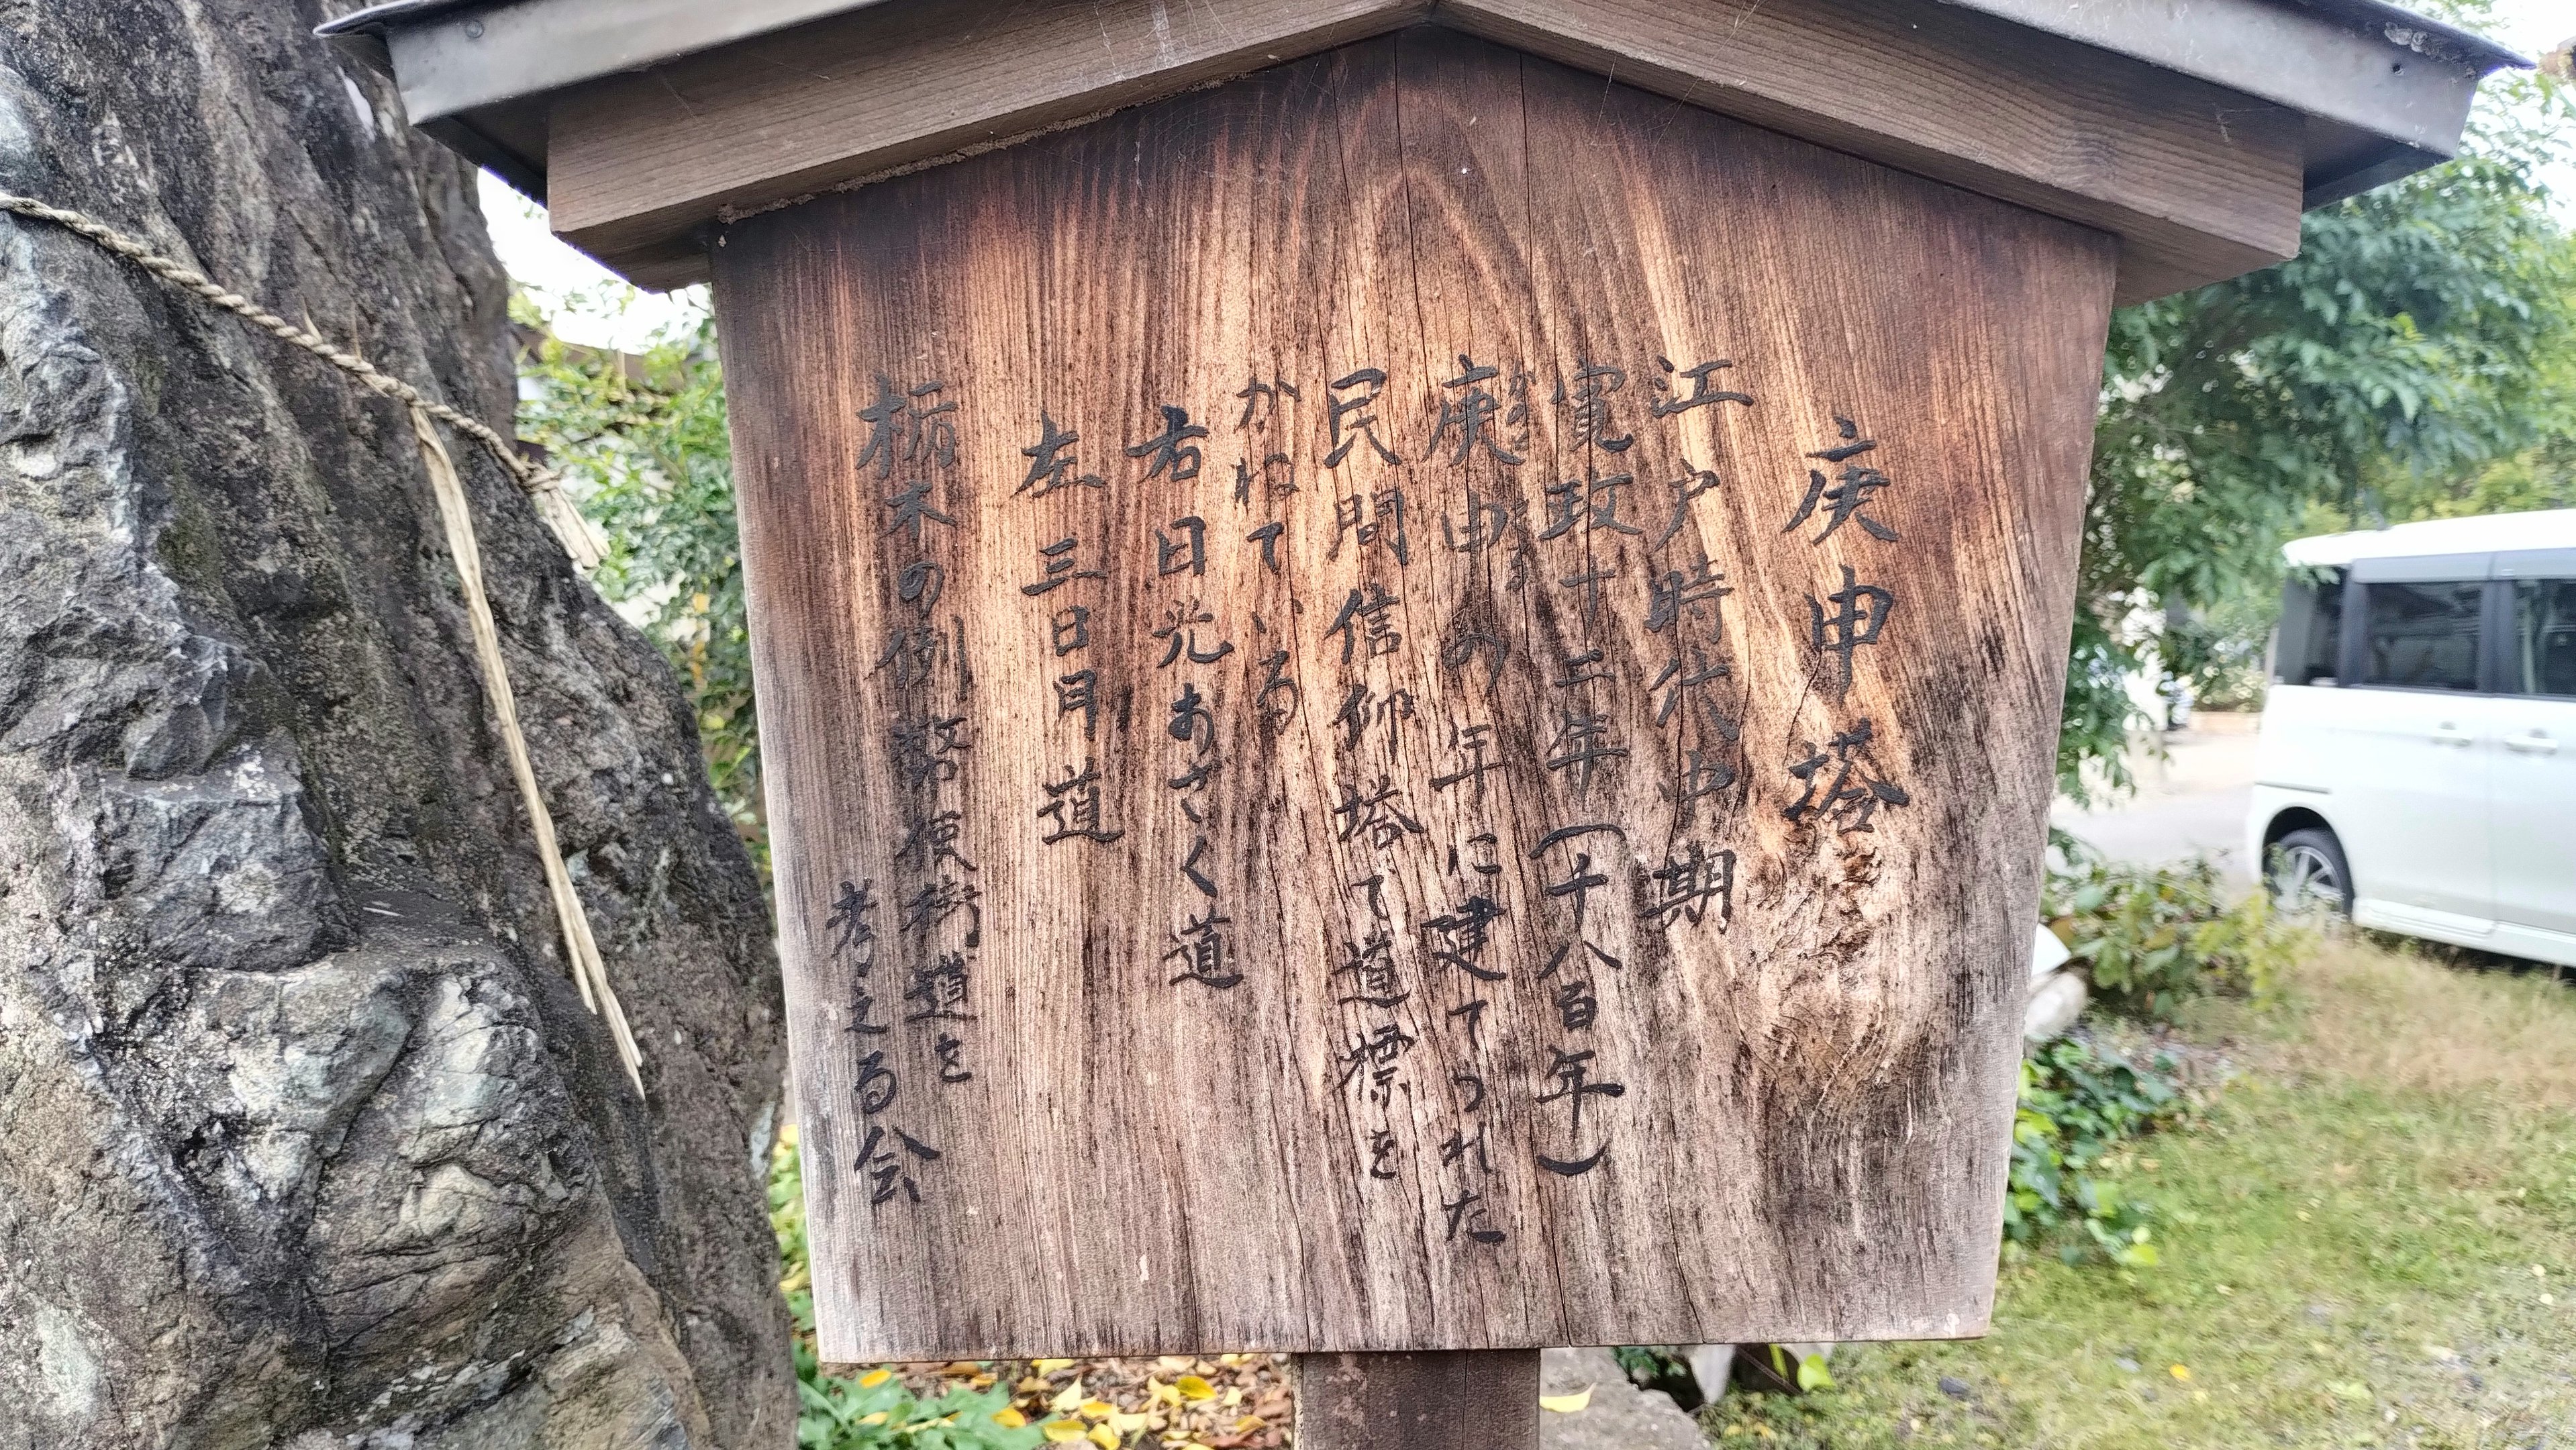 庚申塔
江戸時代中期
寛政十二年(千八百年)
庚申の年に建てられた
かのえ さる
民間信仰塔で道標を
かねている
右日光あさくら道
左三日月道
栃木の例幣使街道を
考える会